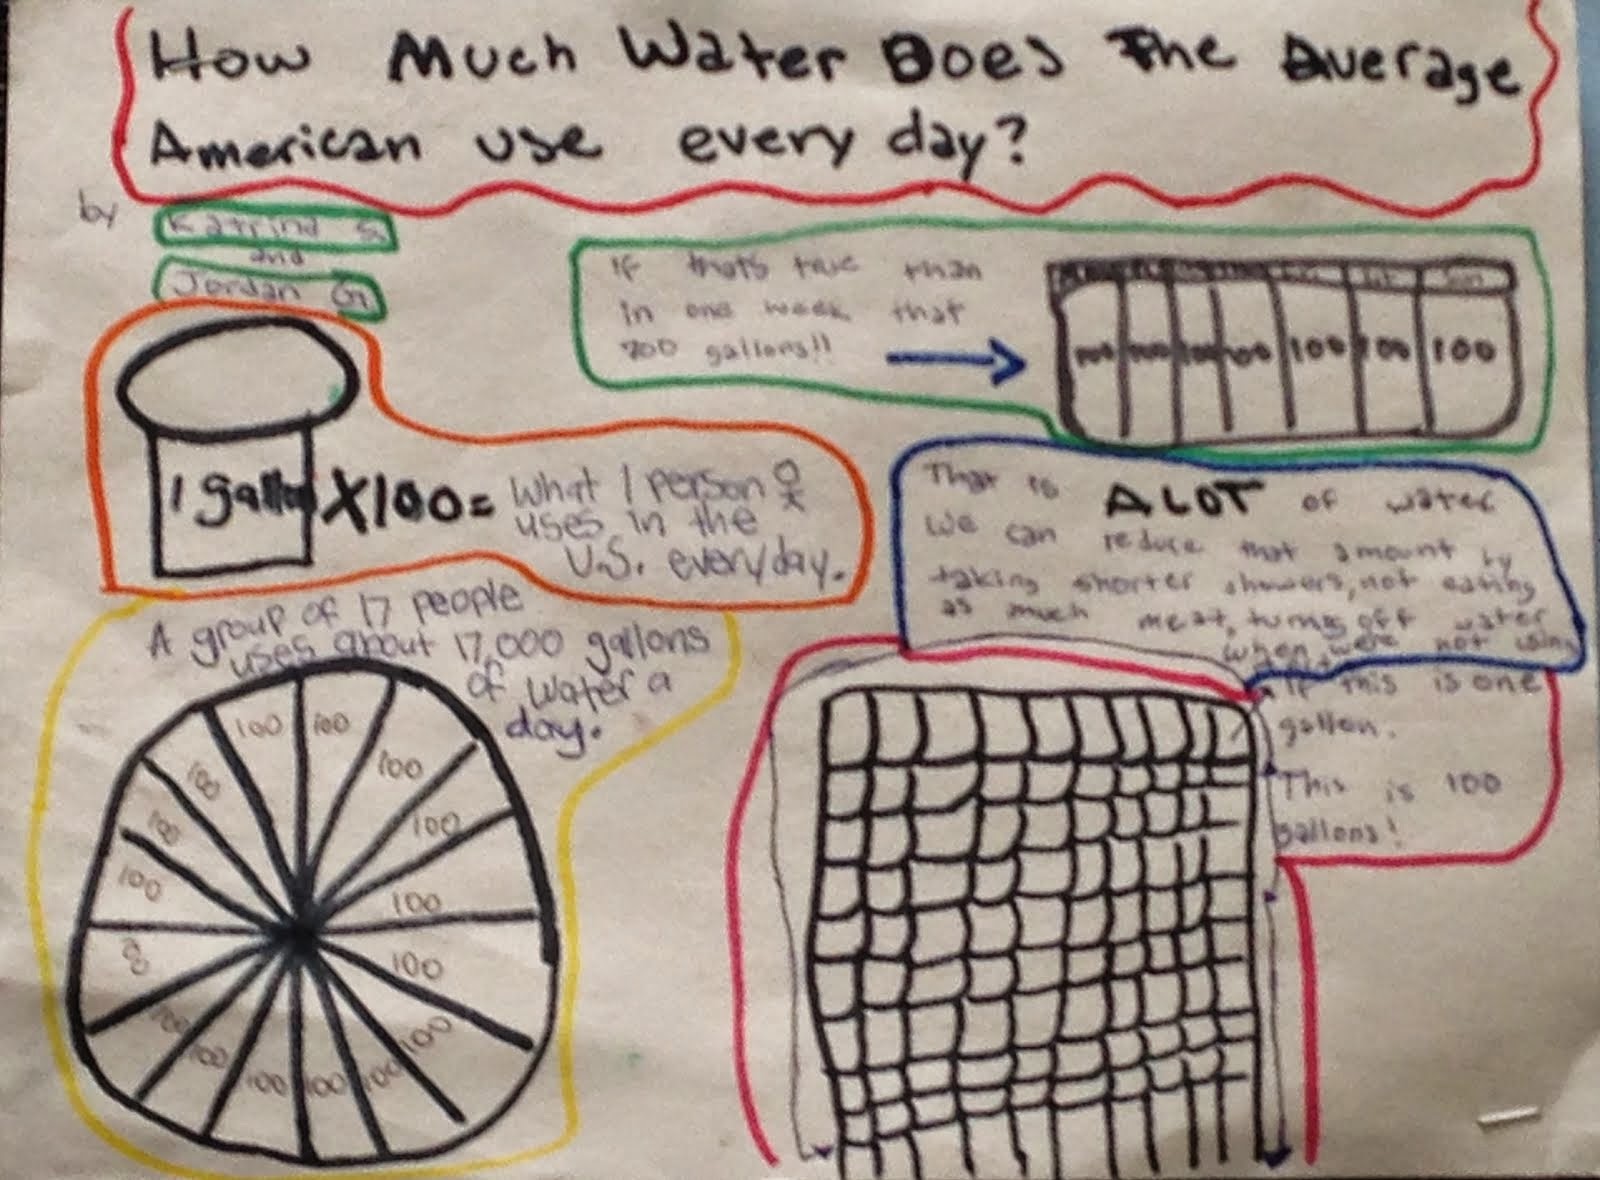 How Much Water Does The Average
American use every day?
by
Katrina S.
and
Jordan G.
If that's true than
in one week that
700 gallons!!
100 100 100 100 100 100 100
1 gallon X100=
What 1 person
uses in the
U.S. everyday.
That is ALOT of water
We can reduce that amount by
taking shorter showers, not eating
as much meat, turning off water
when we're not using
A group of 17 people
uses about 17,000 gallons
of water a
day.
100 100
100 100
100 100
100 100
100
100
100 100 100 100 100 100
If this is one
gallon.
This is 100
gallons!